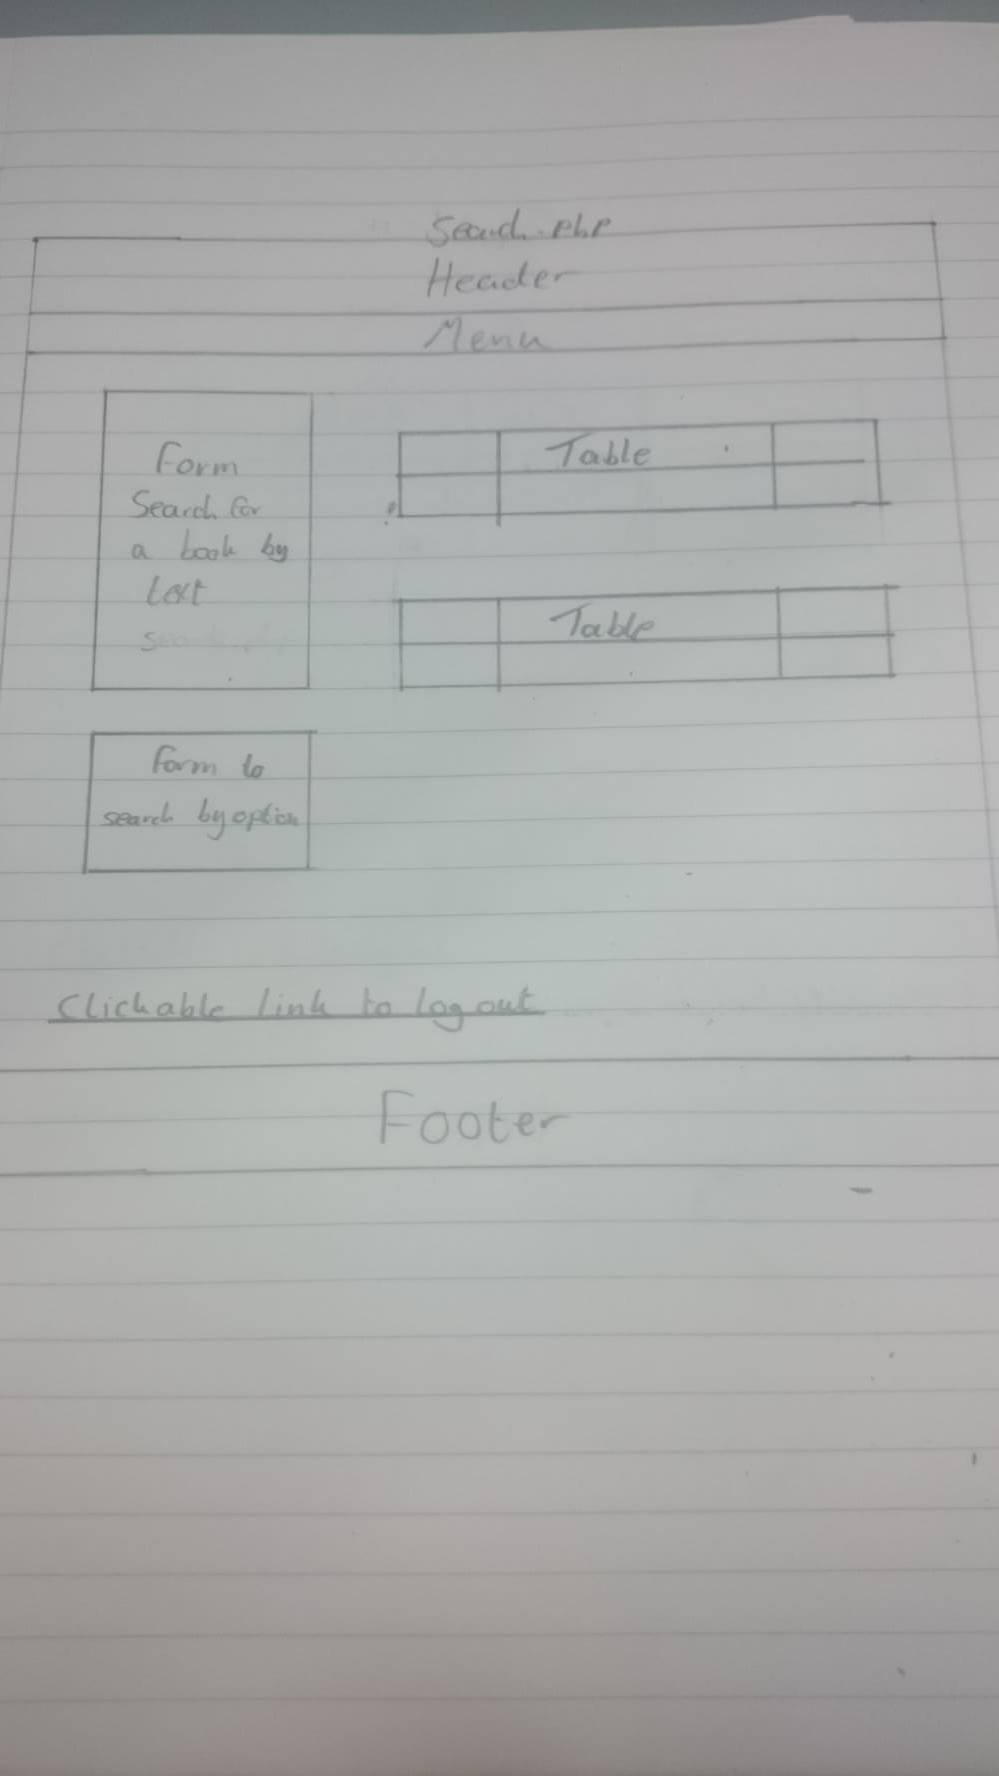 Search.php
Header
Menu
Form
Search for
a book by
text
Table
Table
Form to
search by option
Clickable link to log out
Footer